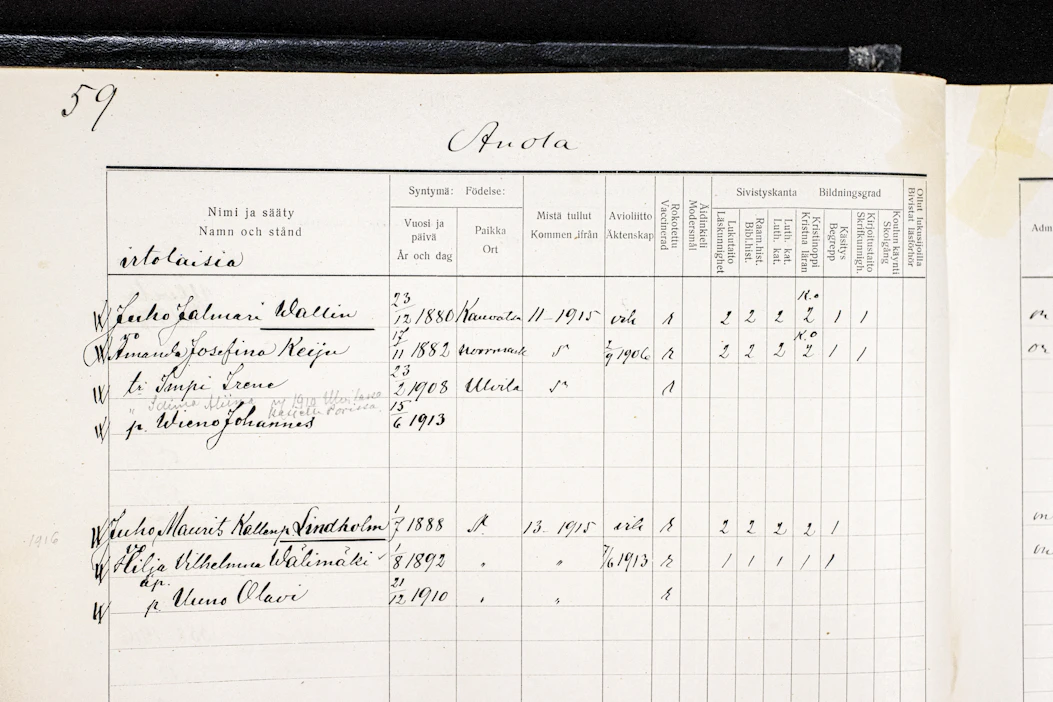 59
Anola
Nimi ja sääty
Namn och stånd
irtolaisia
Syntymä: Födelse:
Vuosi ja päivä
År och dag
Paikka
Ort
Mistä tullut
Kommen ifrån
Avioliitto
Äktenskap
Rokotettu
Vaccinerad
Äidinkieli
Modersmål
Sivistyskanta Bildningsgrad
Lukutaito
Läskunnighet
Raam.hist.
Bibl.hist.
Luth. kat.
Luth. kat.
Kristinoppi
Kristna läran
Käsitys
Begrepp
Kirjoitustaito
Skrifkunnigh.
Koulun käynti
Skolgång
Ollut lukusijoilla
Bivistat läsförhör
Adm
Juho Jalmari Wallin 23/12 1880 Kauvatsa 11 1915 vih r 2 2 2 K.o 2 1 1
vo Amanda Josefina Keiju 17/11 1882 Norrmark 2/9 1906 r 2 2 2 K.o 2 1 1
tr Impi Irene 23/2 1908 Ulvila
p. Wieno Johannes 15/6 1913
Juho Maurits Kallenp. Lindholm 1/7 1888 13 1915 vih r 2 2 2 2 1
1916
Hilja Vilhelmina Wälimäki 1/8 1892 " " 7/6 1913 r 1 1 1 1 1
äp.
p. Uuno Olavi 21/12 1910 " " r